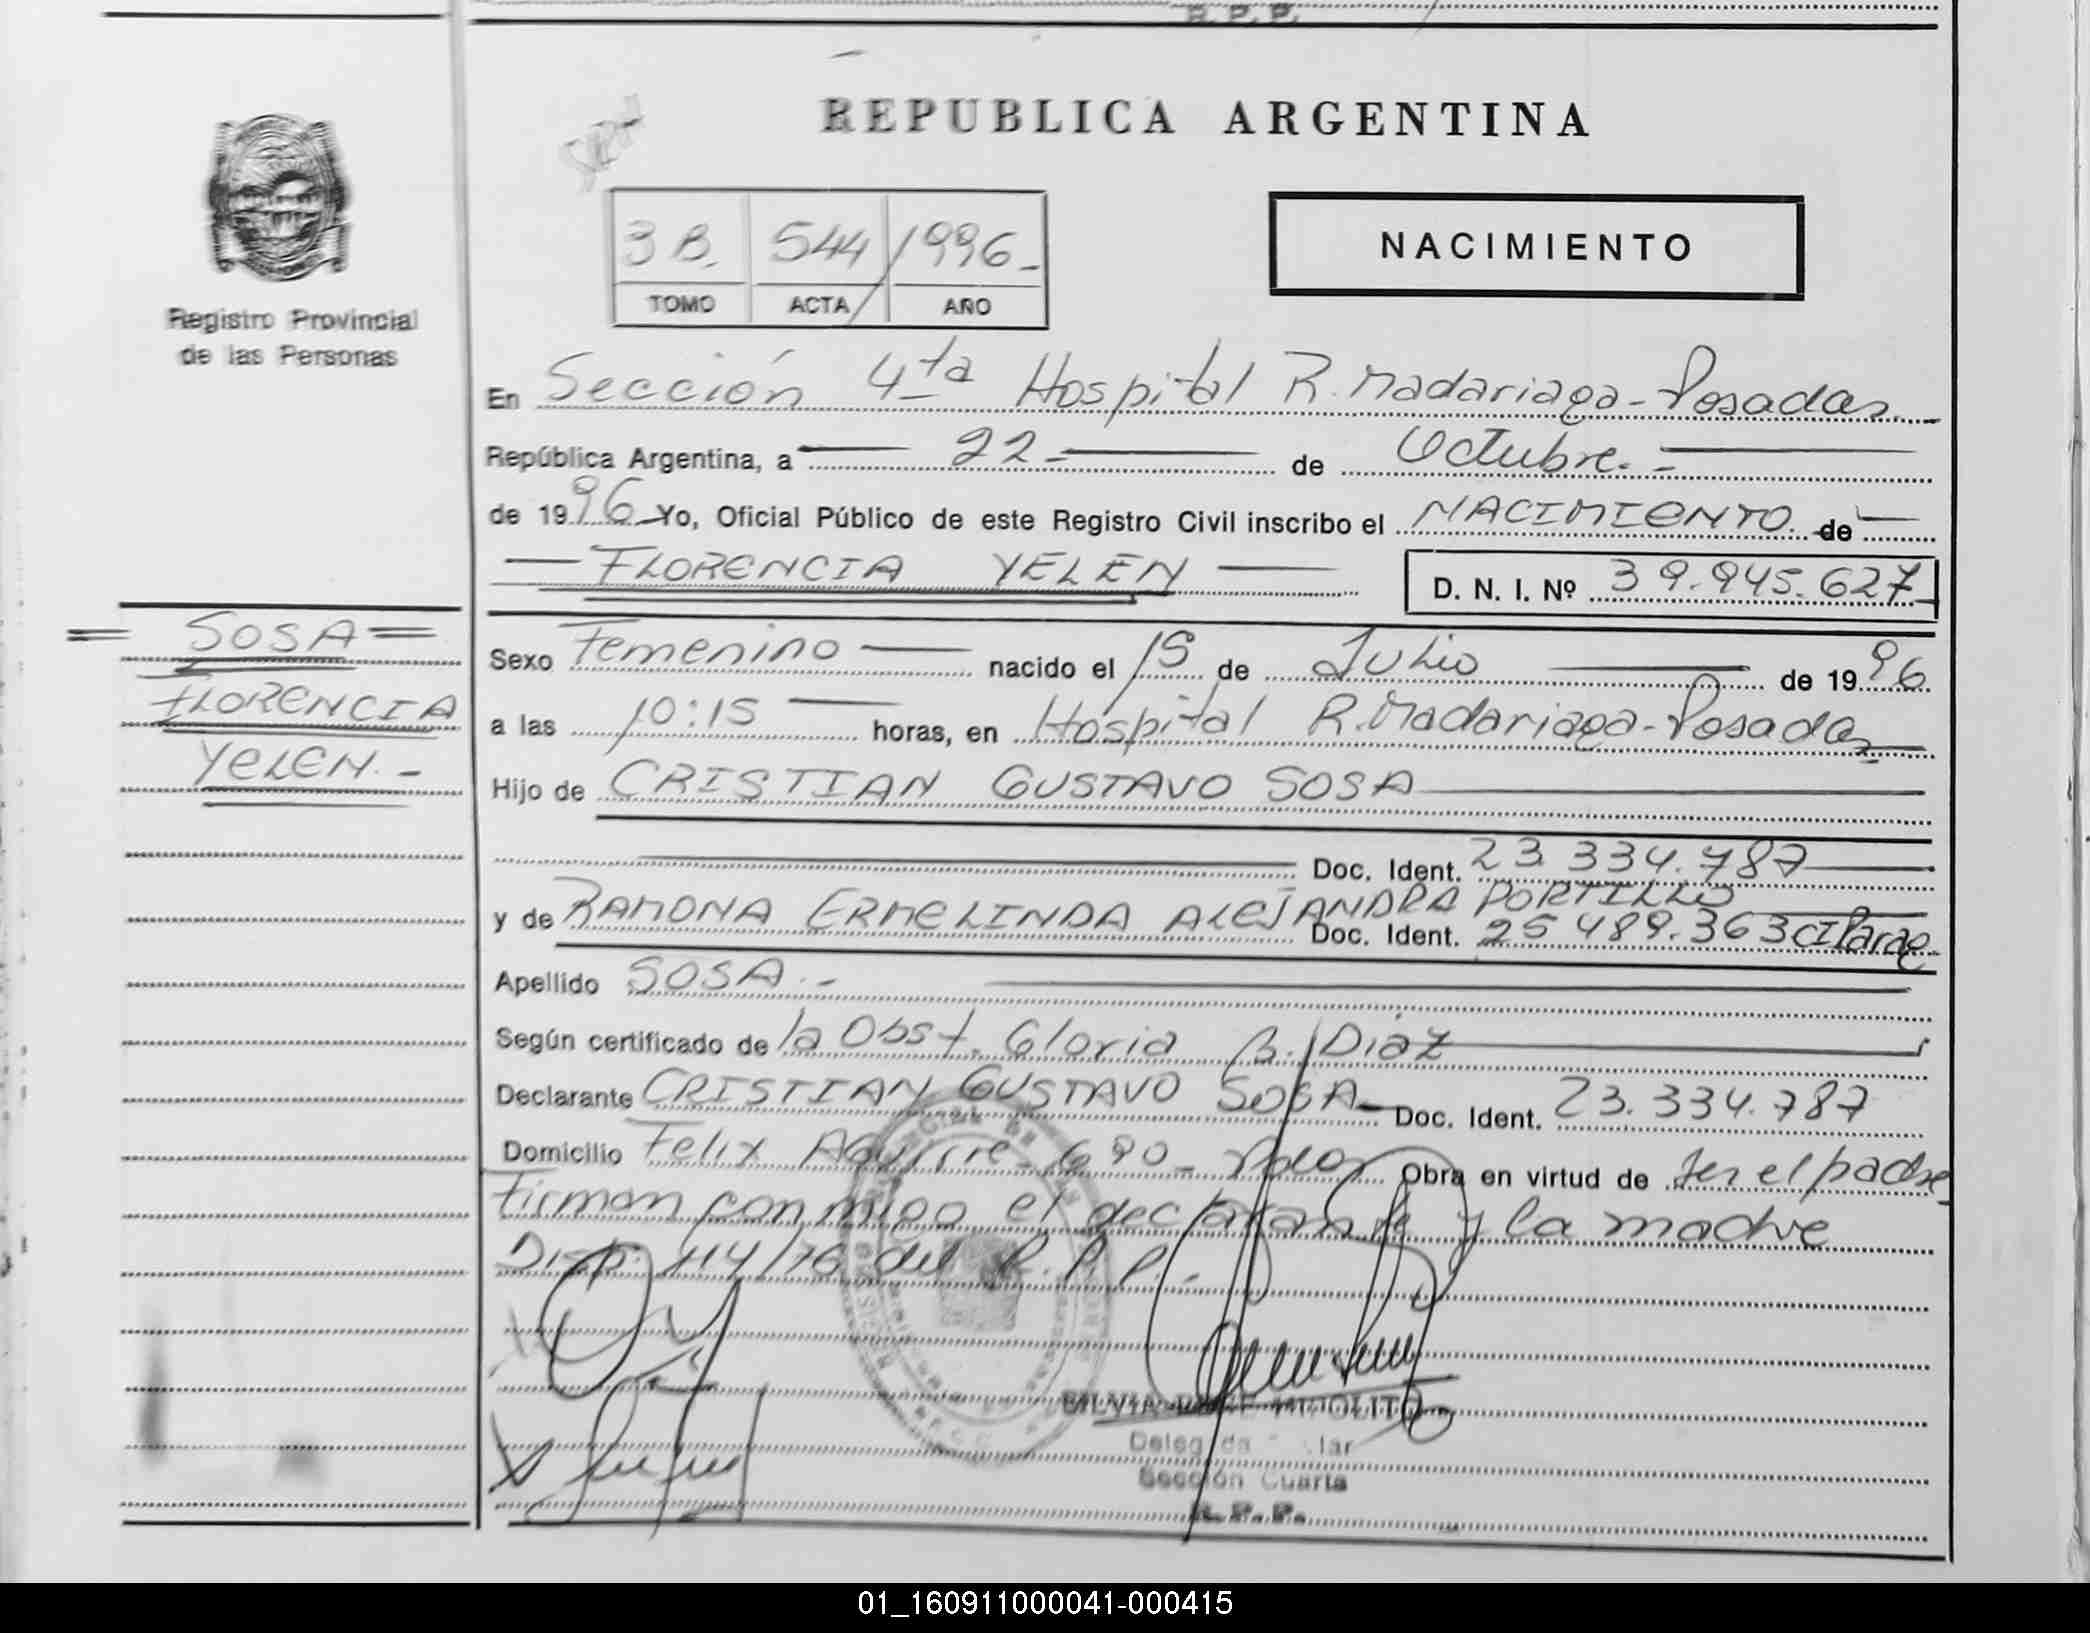 R. P. P.
REPUBLICA ARGENTINA
3 B. 544 1996
TOMO ACTA AÑO
NACIMIENTO
Registro Provincial
de las Personas
En Sección 4ta Hospital R. Madariaga - Posadas
República Argentina, a 22 de Octubre.
de 1996 Yo, Oficial Público de este Registro Civil inscribo el NACIMIENTO. de
FLORENCIA YELEN D. N. I. Nº 39.945.627
SOSA
FLORENCIA
YELEN.
Sexo Femenino nacido el 15 de Julio de 1996
a las 10:15 horas, en Hospital R. Madariaga - Posadas
Hijo de CRISTIAN GUSTAVO SOSA
Doc. Ident. 23.334.787
y de RAMONA ERMELINDA ALEJANDRA PORTILLO
Doc. Ident. 25.489.363 CI Parag
Apellido SOSA
Según certificado de la Obst. Gloria B. Diaz
Declarante CRISTIAN GUSTAVO SOSA Doc. Ident. 23.334.787
Domicilio Felix Aguirre 690 - Obra en virtud de ser el padre
Firman conmigo el declarante y la madre
Disp. 114/76 del R. P. P.
SILVIA HIPOLITO
Sección Cuarta
R. P. P.
01_160911000041-000415